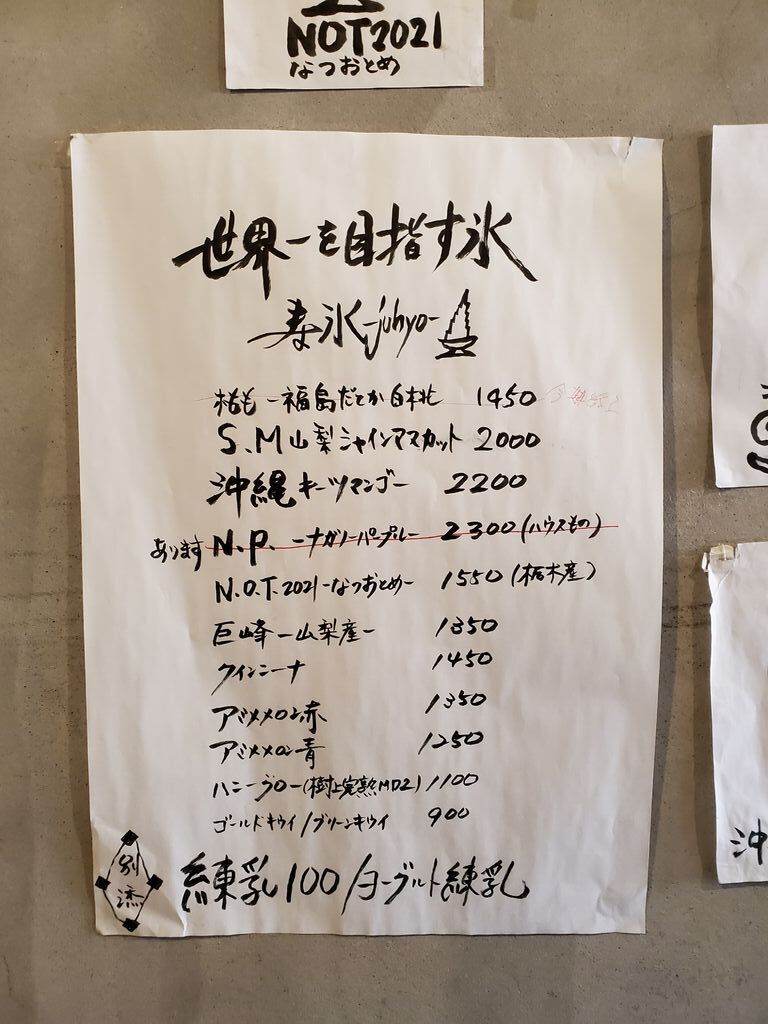 NOT2021
なつおとめ
世界一を目指す氷
寿氷-juhyo-
桃も-福島だてか白桃 1450
S.M山梨シャインマスカット 2000
沖縄キーツマンゴー 2200
あります N.P.-ナガノパープル- 2300(ハウスもの)
N.O.T.2021-なつおとめ- 1550(栃木産)
巨峰-山梨産- 1350
クインニーナ 1450
アミメメロン赤 1350
アミメメロン青 1250
ハニーグロー(樹上完熟MD2) 1100
ゴールドキウイ/グリーンキウイ 900
別添
練乳100/ヨーグルト練乳
沖